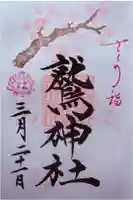 さくら詣
鷲神社
三月二十一日